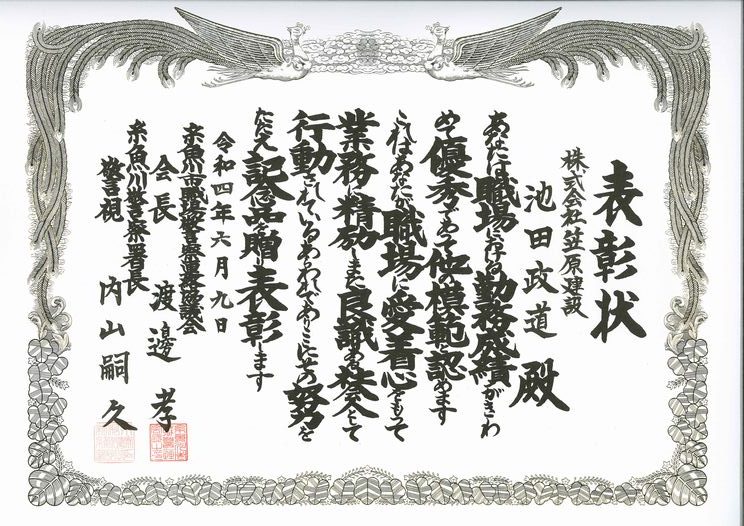 表彰状
株式会社笠原建設
池田政道 殿
あなたは職場における勤務成績がきわ
めて優秀であって他の模範と認めます
これはあなたが職場に愛着心をもって
業務に精励しまた良識ある社会人として
行動されているあらわれでありここにその努力を
たたえ記念品を贈り表彰します
令和四年六月九日
糸魚川市職域警察連絡協議会
会長 渡邊孝
糸魚川警察署長
警視 内山嗣久